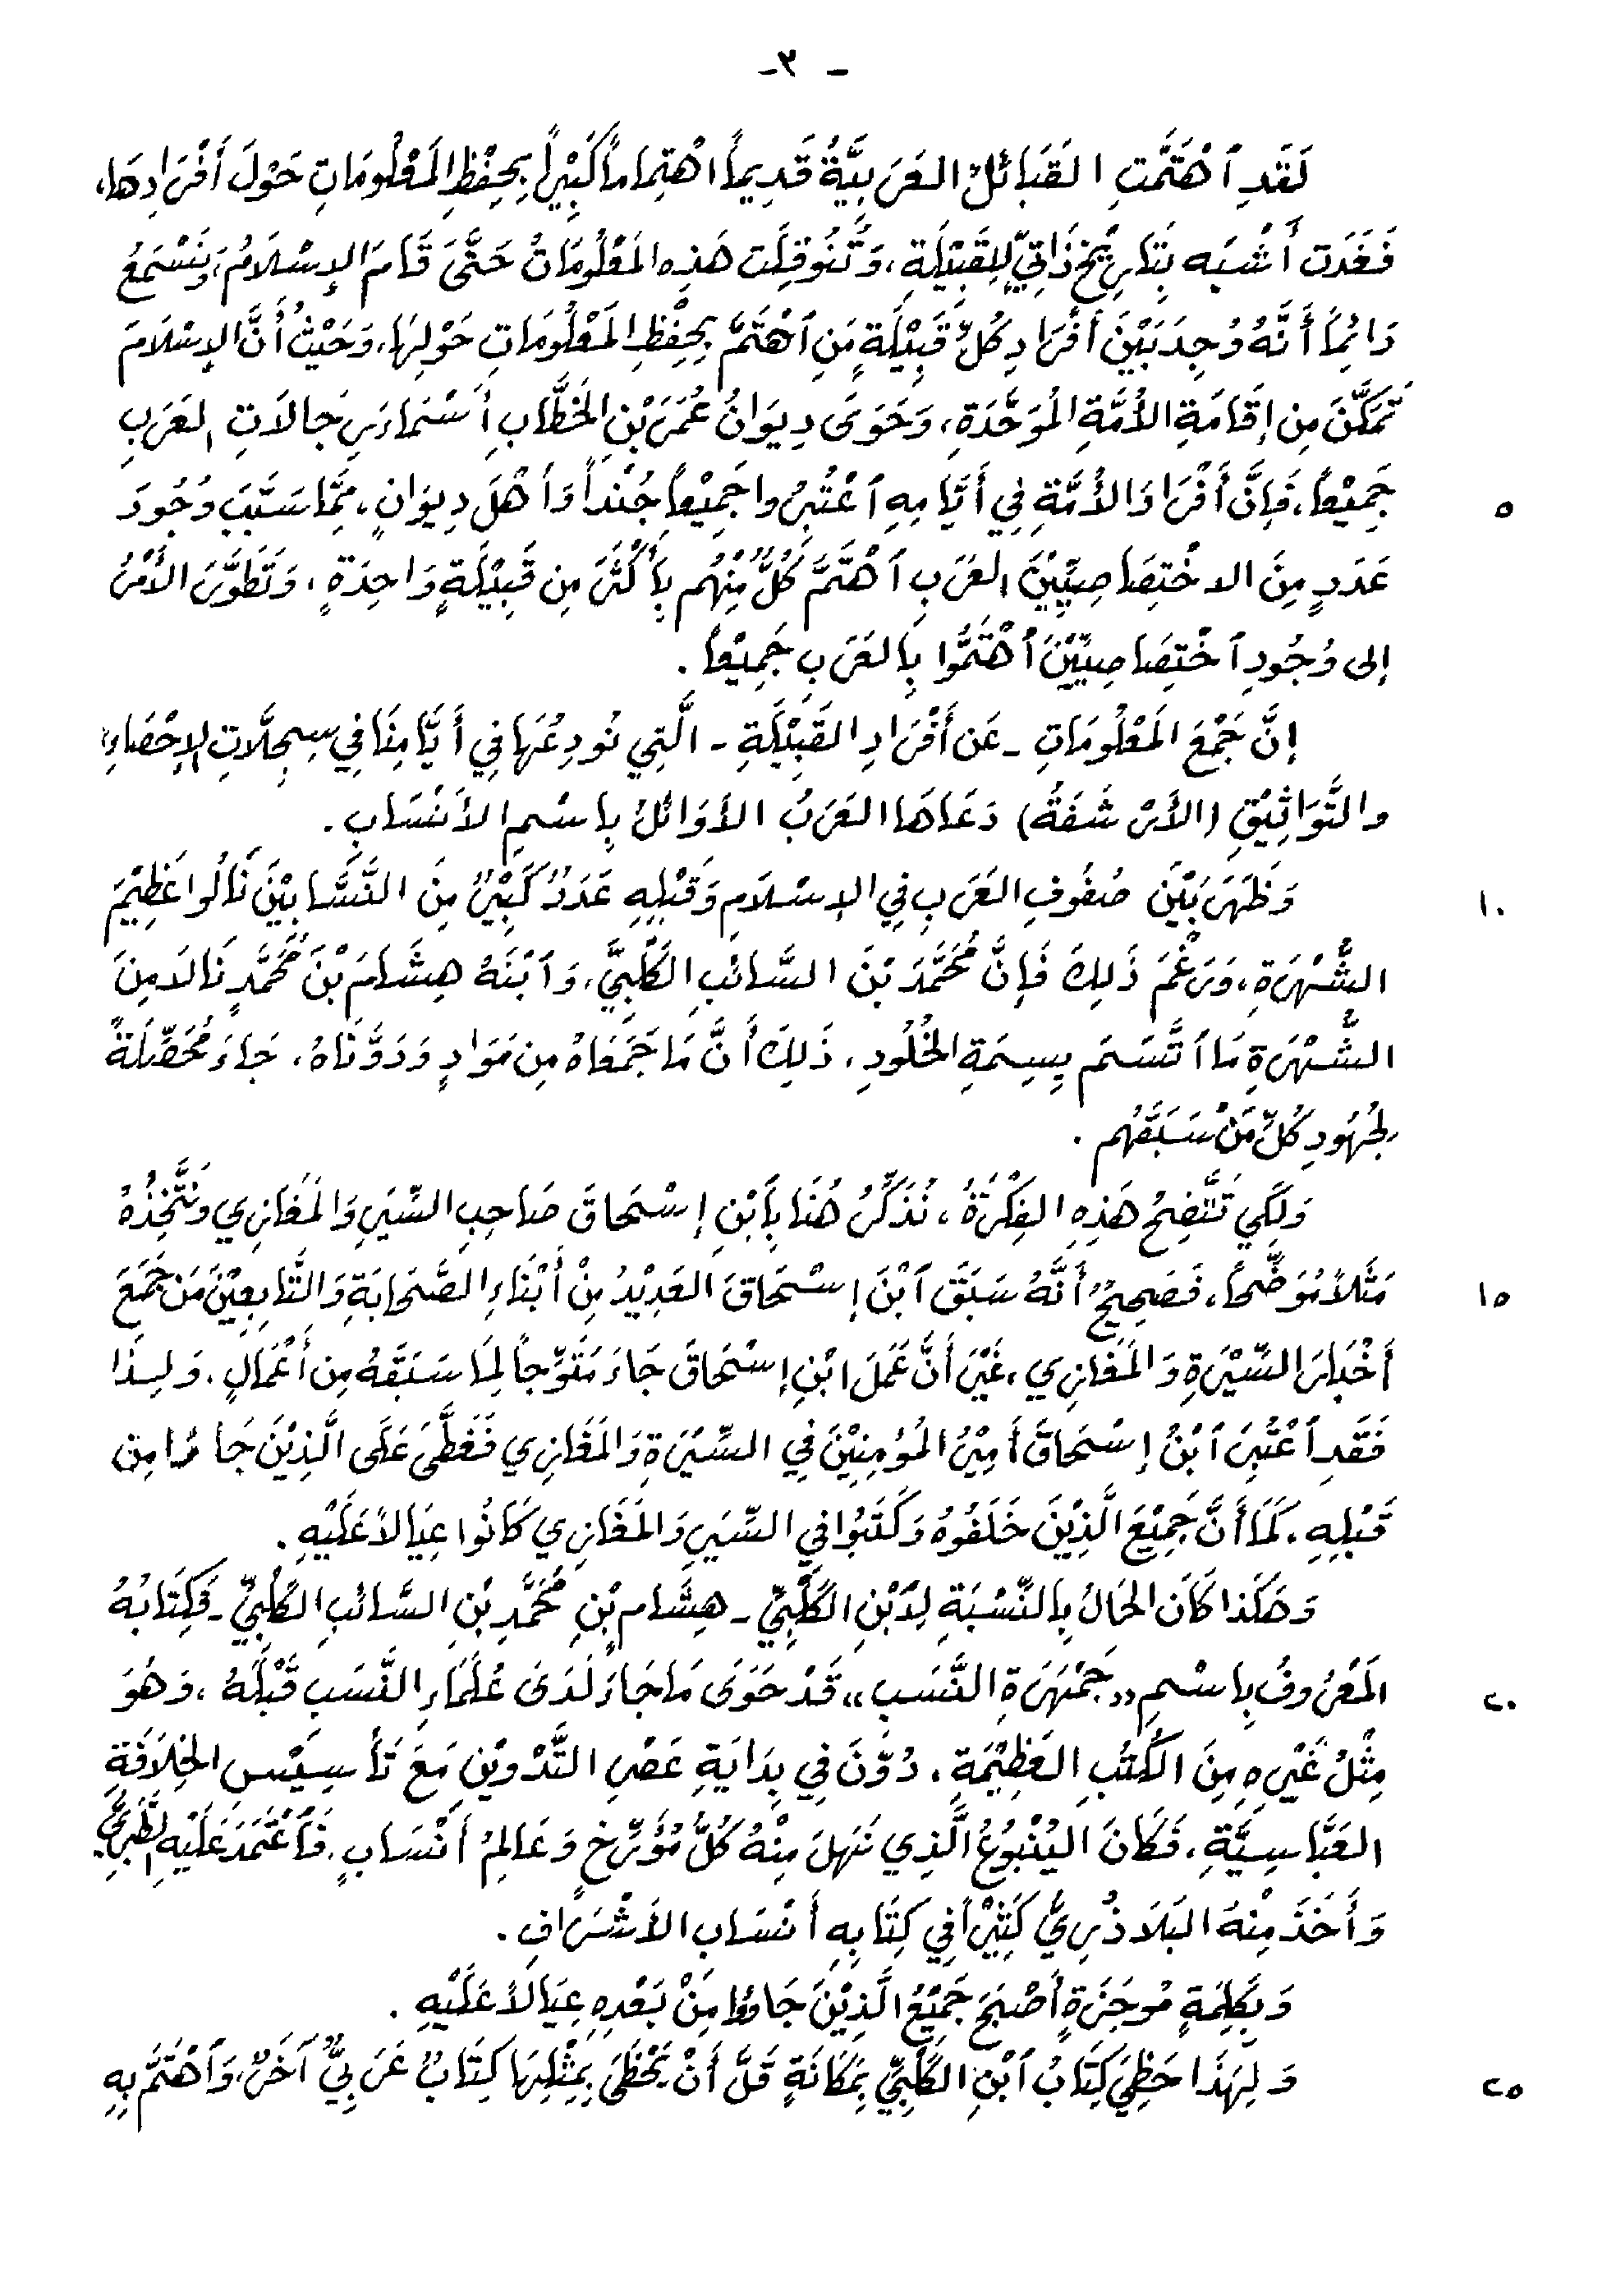 - ٣ -
لَقَدِ ٱهْتَمَّتِ القَبَائِلُ العَرَبِيَّةُ قَدِيماً اهْتِماماً كَبِيْراً بِحِفْظِ المَعْلُومَاتِ حَوْلَ أَفْرَادِهَا،
فَغَدَت أَشْبَه بِتَارِيْخٍ ذَاتِيٍّ لِلقَبِيْلَةِ، وَتُنُوقِلَت هَذِهِ المَعْلُومَاتُ حَتَّى قَامَ الإِسْلَامُ، وَنَسْمَعُ
دَائِمَاً أَنَّهُ وُجِدَ بَيْنَ أَفْرَادِ كُلِّ قَبِيْلَةٍ مَنِ ٱهْتَمَّ بِحِفْظِ المَعْلُومَاتِ حَوْلِهَا، وَحَيْثُ أَنَّ الإِسْلَامَ
تَمَكَّنَ مِن إِقَامَةِ الأُمَّةِ المُوَحَّدَةِ، وَحَوَى دِيوَانُ عُمَرَ بْنِ الخَطَّابِ أَسْمَاءَ رِجَالَاتِ العَرَبِ
٥ جَمِيْعاً، فَإِنَّ أَفْرَادَ الأُمَّةِ فِي أَيَّامِهِ ٱعْتُبِرُوا جَمِيْعاً جُنْداً وَأَهْلَ دِيوَانٍ، مِمَّا سَبَّبَ وُجُودَ
عَدَدٍ مِنَ الاخْتِصَاصِيِّيْنَ العَرَبِ ٱهْتَمَّ كُلٌّ مِنْهُم بِأَكْثَرَ مِن قَبِيْلَةٍ وَاحِدَةٍ، وَتَطَوَّرَ الأَمْرُ
إلى وُجُودِ ٱخْتِصَاصِيِّيْنَ ٱهْتَمُّوا بِالعَرَبِ جَمِيْعاً.
إِنَّ جَمْعَ المَعْلُومَاتِ - عَن أَفْرَادِ القَبِيْلَةِ - الَّتِي نُودِعُهَا فِي أَيَّامِنَا فِي سِجِلَّاتِ الإِحْصَاءِ
والتَّوَاثِيْقِ (الأَرْشَفَةُ) دَعَاهَا العَرَبُ الأَوَائِلُ بِاسْمِ الأَنْسَابِ.
١٠ وَظَهَرَ بَيْنَ صُفُوفِ العَرَبِ فِي الإِسْلَامِ وَقَبْلِهِ عَدَدٌ كَبِيْرٌ مِنَ النَّسَّابِيْنَ نَالُوا عَظِيْمَ
الشُّهْرَةِ، وَرَغْمَ ذَلِكَ فَإِنَّ مُحَمَّدَ بْنَ السَّائِبِ الكَلْبِيَّ، وَٱبْنَهُ هِشَامَ بْنَ مُحَمَّدٍ نَالَا مِنَ
الشُّهْرَةِ مَا ٱتَّسَمَ بِسِمَةِ الخُلُودِ، ذَلِكَ أَنَّ مَا جَمَعَاهُ مِن مَوَادٍ وَدَوَّنَاهُ، جَاءَ مُحَصِّلَةً
لِجُهُودِ كُلِّ مَنْ سَبَقَهُم.
وَلِكَي تَتَّضِحَ هَذِهِ الفِكْرَةُ، نُذَكِّرُ هُنَا بِٱبْنِ إِسْحَاقَ صَاحِبِ السِّيَرِ وَالمَغَازِي وَنَتَّخِذُهُ
١٥ مَثَلاً مُوَضِّحاً، فَصَحِيحٌ أَنَّهُ سَبَقَ ٱبْنَ إِسْحَاقَ العَدِيْدُ مِنْ أَبْنَاءِ الصَّحَابَةِ وَالتَّابِعِيْنَ مَن جَمَعَ
أَخْبَارَ السِّيْرَةِ وَالمَغَازِي، غَيْرَ أَنَّ عَمَلَ ابْنِ إِسْحَاقَ جَاءَ مُتَوِّجاً لِمَا سَبَقَهُ مِن أَعْمَالٍ. وَلِذَا
فَقَدِ ٱعْتُبِرَ ٱبْنُ إِسْحَاقَ أَمِيْرُ المُؤمِنِيْنَ فِي السِّيْرَةِ وَالمَغَازِي فَغَطَّى عَلَى الَّذِيْنَ جَاءُوا مِن
قَبْلِهِ. كَمَا أَنَّ جَمِيْعَ الَّذِيْنَ خَلَفُوهُ وَكَتَبُوا فِي السِّيَرِ وَالمَغَازِي كَانُوا عِيَالاً عَلَيْهِ.
وَهَكَذَا كَانَ الحَالُ بِالنِّسْبَةِ لِٱبْنِ الكَلْبِيِّ - هِشَامِ بْنِ مُحَمَّدِ بْنِ السَّائِبِ الكَلْبِيِّ - فَكِتَابُهُ
٢٠ المَعْرُوفُ بِاسْمِ «جَمْهَرَةِ النَّسَبِ» قَدْ حَوَى مَا جَاءَ لَدَى عُلَمَاءِ النَّسَبِ قَبْلَهُ، وَهُوَ
مِثْلُ غَيْرِهِ مِنَ الكُتُبِ العَظِيْمَةِ، دُوِّنَ فِي بِدَايَةِ عَصْرِ التَّدْوِيْنِ مَعَ تَأْسِيْسِ الخِلَافَةِ
العَبَّاسِيَّةِ، فَكَانَ اليُنْبُوعُ الَّذِي نَهَلَ مِنْهُ كُلُّ مُؤَرِّخٍ وَعَالِمُ أَنْسَابٍ، فَٱعْتَمَدَ عَلَيْهِ الطَّبَرِيُّ
وَأَخَذَ مِنْهُ البَلَاذُرِيُّ كَثِيْراً فِي كِتَابِهِ أَنْسَابِ الأَشْرَافِ.
وَبِكَلِمَةٍ مُوجَزَةٍ أَصْبَحَ جَمِيْعُ الَّذِيْنَ جَاءُوا مِنْ بَعْدِهِ عِيَالاً عَلَيْهِ.
٢٥ وَلِهَذَا حَظِيَ كِتَابُ ٱبْنِ الكَلْبِيِّ بِمَكَانَةٍ قَلَّ أَنْ يَحْظَى بِمِثْلِهَا كِتَابٌ عَرَبِيٌّ آخَرُ، وَٱهْتَمَّ بِهِ